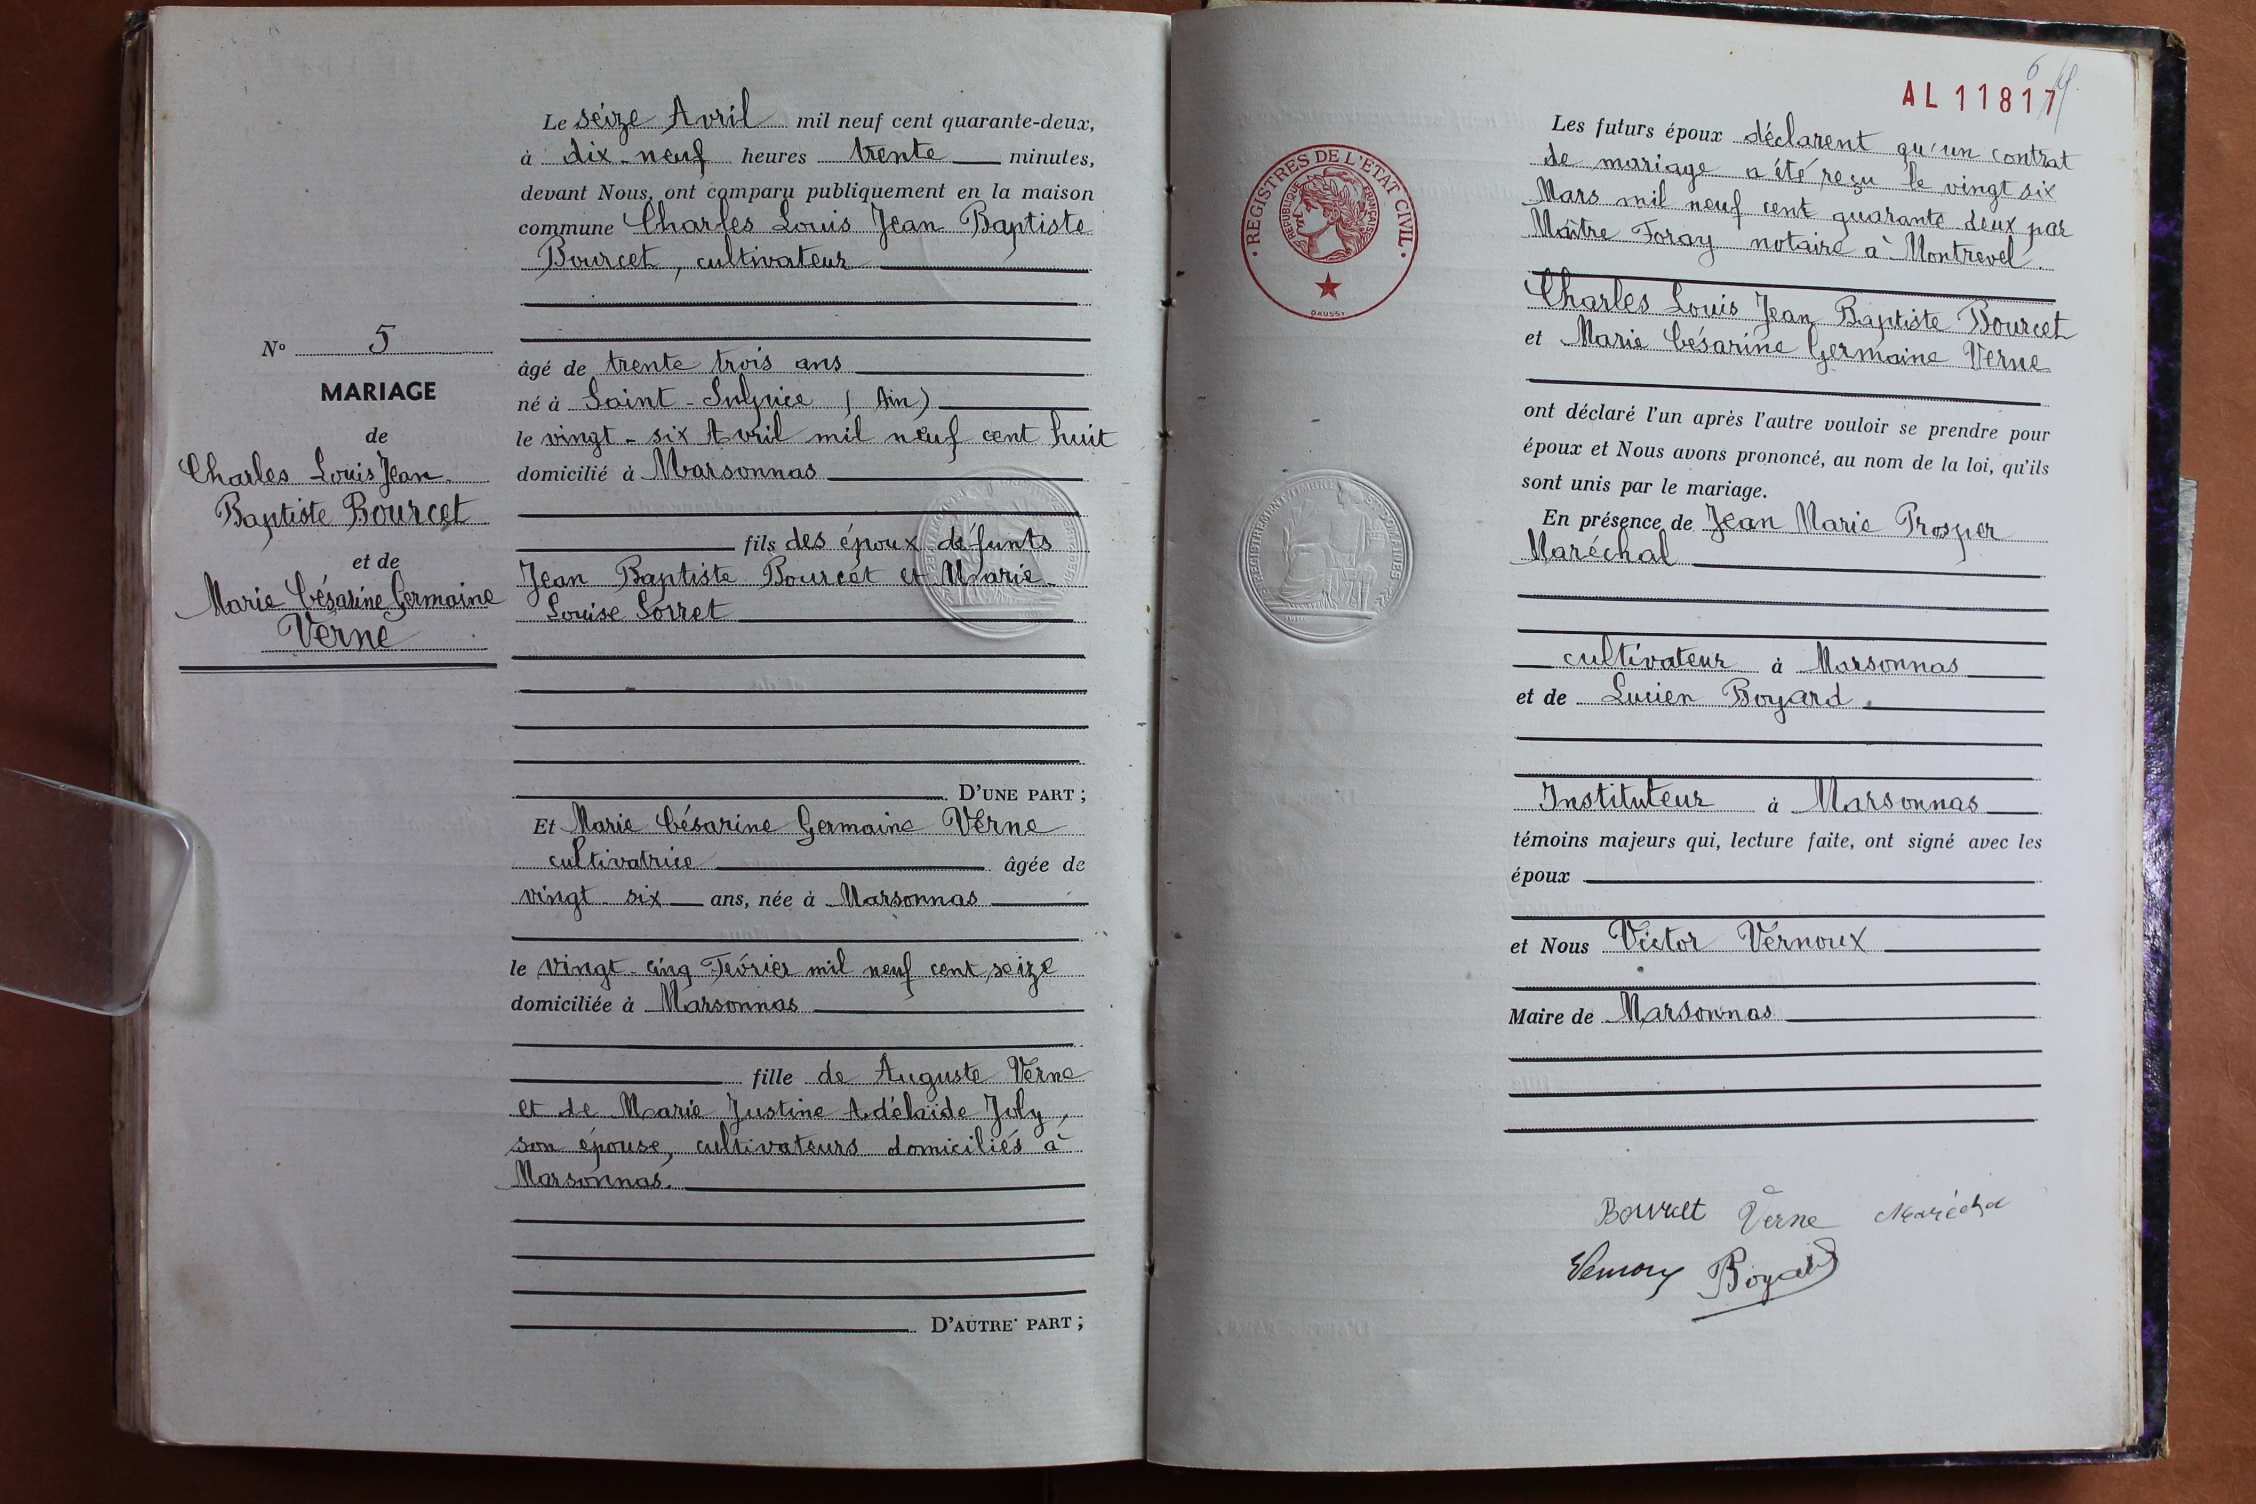 N° 5
MARIAGE
de
Charles Louis Jean
Baptiste Bourcet
et de
Marie Césarine Germaine
Verne
Le seize Avril mil neuf cent quarante-deux,
à dix-neuf heures trente minutes,
devant Nous, ont comparu publiquement en la maison
commune Charles Louis Jean Baptiste
Bourcet, cultivateur
âgé de trente trois ans
né à Saint-Sulpice (Ain)
le vingt-six Avril mil neuf cent huit
domicilié à Marsonnas
fils des époux défunts
Jean Baptiste Bourcet et Marie-
Louise Sorret
D'UNE PART ;
Et Marie Césarine Germaine Verne
cultivatrice âgée de
vingt-six ans, née à Marsonnas
le vingt-cinq Février mil neuf cent seize
domiciliée à Marsonnas
fille de Auguste Verne
et de Marie Justine Adélaïde Joly,
son épouse, cultivateurs domiciliés à
Marsonnas.
D'AUTRE PART ;
6
AL 11817
REGISTRES DE L'ETAT CIVIL
REPUBLIQUE FRANÇAISE
DAUSSY
Les futurs époux déclarent qu'un contrat
de mariage a été reçu le vingt six
Mars mil neuf cent quarante deux par
Maître Foray notaire à Montrevel.
Charles Louis Jean Baptiste Bourcet
et Marie Césarine Germaine Verne
ont déclaré l'un après l'autre vouloir se prendre pour
époux et Nous avons prononcé, au nom de la loi, qu'ils
sont unis par le mariage.
En présence de Jean Marie Prosper
Maréchal
cultivateur à Marsonnas
et de Lucien Boyard
Instituteur à Marsonnas
témoins majeurs qui, lecture faite, ont signé avec les
époux
et Nous Victor Vernoux
Maire de Marsonnas
Bourcet Verne Maréchal
Vernoux Boyard